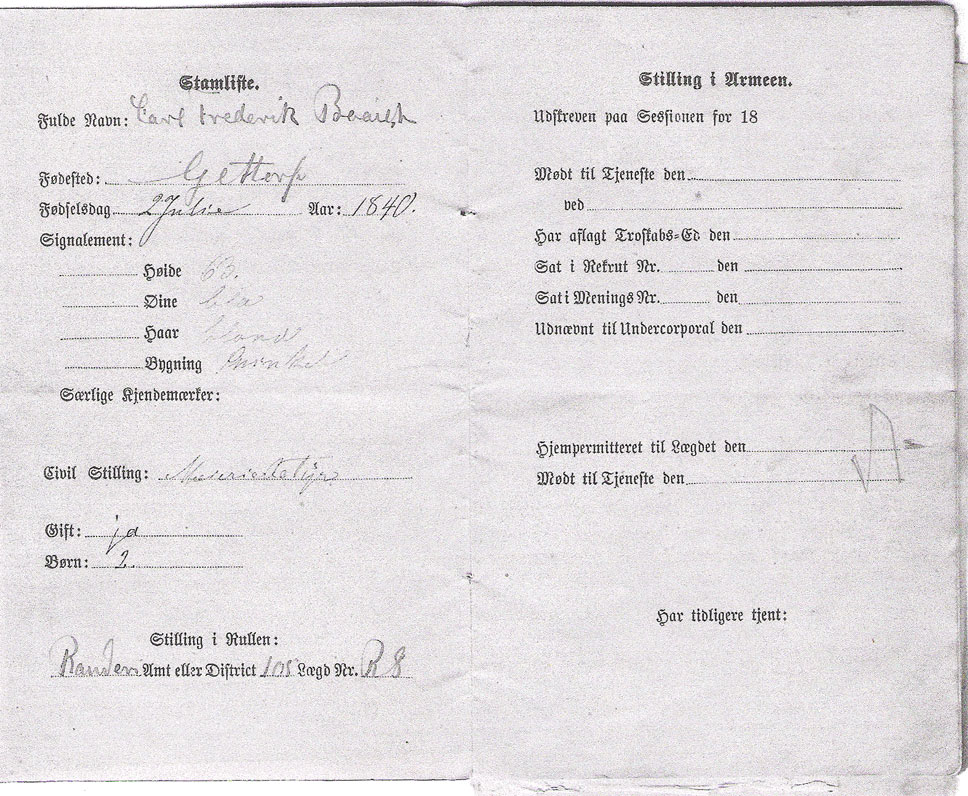 Stamliste.
Fulde Navn: Carl Frederik
Fødested: Gettorp
Fødselsdag 2 Julie Aar: 1840.
Signalement:
Høide 63.
Øine bla
Haar blond
Bygning
Særlige Kjendemærker:
Civil Stilling:
Gift: ja
Børn: 2.
Stilling i Rullen:
Randers Amt eller District 105 Lægd Nr. R 8
Stilling i Armeen.
Udskreven paa Sessionen for 18
Mødt til Tjeneste den
ved
Har aflagt Troskabs-Ed den
Sat i Rekrut Nr. den
Sat i Menings Nr. den
Udnævnt til Undercorporal den
Hjempermitteret til Lægdet den
Mødt til Tjeneste den
Har tidligere tjent: